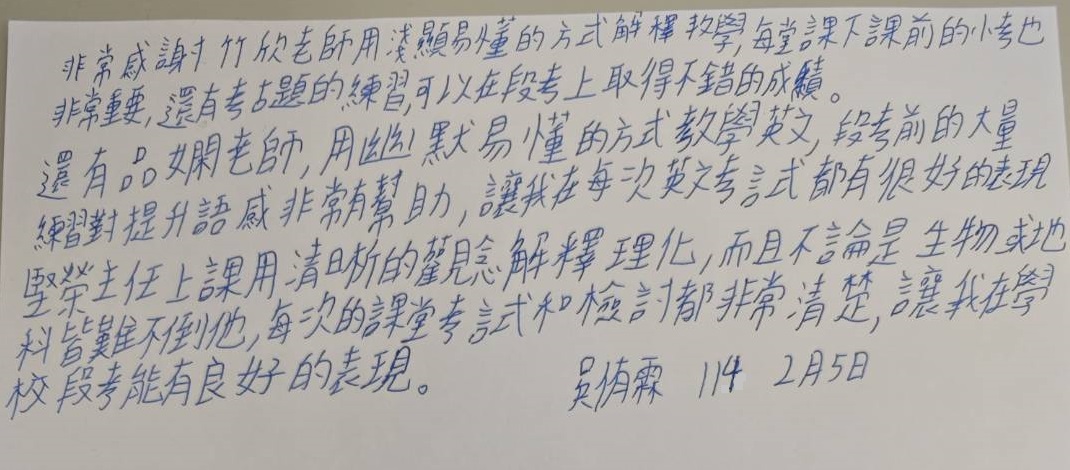 非常感謝竹欣老師用淺顯易懂的方式解釋教學,每堂課下課前的小考也
非常重要,還有考古題的練習,可以在段考上取得不錯的成績。
還有品嫻老師,用幽默易懂的方式教學英文,段考前的大量
練習對提升語感非常有幫助,讓我在每次英文考試都有很好的表現
堅榮主任上課用清晰的觀念解釋理化,而且不論是生物或地
科皆難不倒他,每次的課堂考試和檢討都非常清楚,讓我在學
校段考能有良好的表現。 吳侑霖 114 2月5日